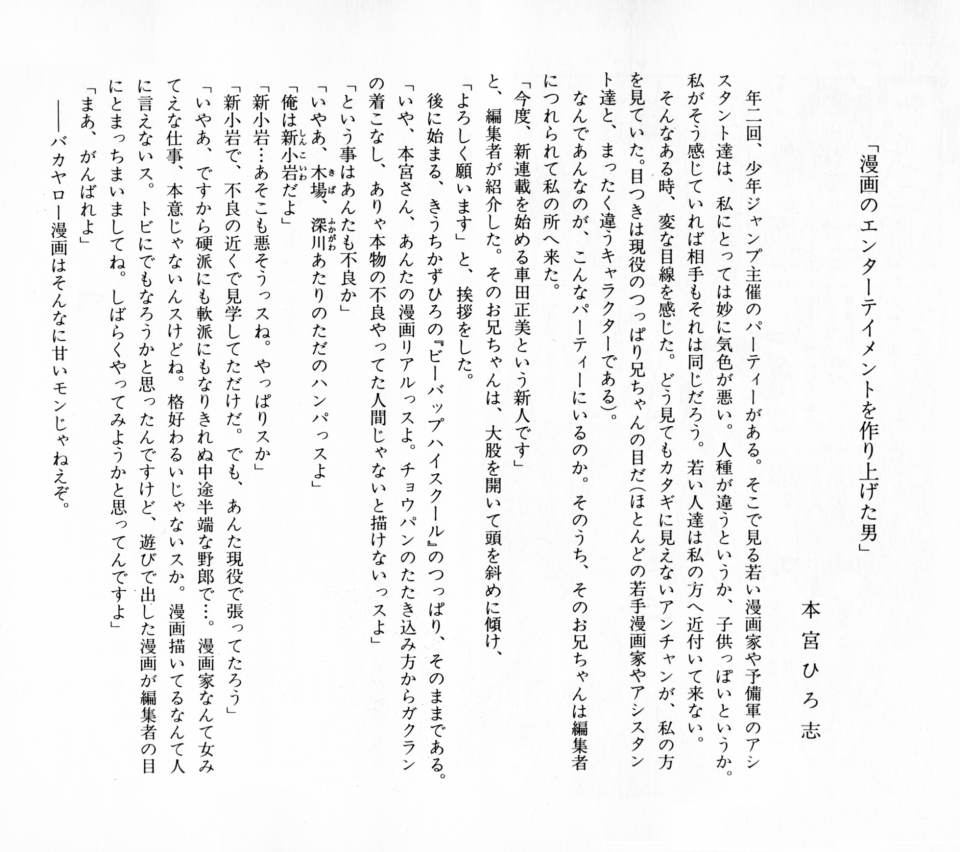 「漫画のエンターテイメントを作り上げた男」
本宮ひろ志
年二回、少年ジャンプ主催のパーティーがある。そこで見る若い漫画家や予備軍のアシ
スタント達は、私にとっては妙に気色が悪い。人種が違うというか、子供っぽいというか。
私がそう感じていれば相手もそれは同じだろう。若い人達は私の方へ近付いて来ない。
そんなある時、変な目線を感じた。どう見てもカタギに見えないアンチャンが、私の方
を見ていた。目つきは現役のつっぱり兄ちゃんの目だ（ほとんどの若手漫画家やアシスタン
ト達と、まったく違うキャラクターである）。
なんであんなのが、こんなパーティーにいるのか。そのうち、そのお兄ちゃんは編集者
につれられて私の所へ来た。
「今度、新連載を始める車田正美という新人です」
と、編集者が紹介した。そのお兄ちゃんは、大股を開いて頭を斜めに傾け、
「よろしく願います」と、挨拶をした。
後に始まる、きうちかずひろの『ビーバップハイスクール』のつっぱり、そのままである。
「いや、本宮さん、あんたの漫画リアルっスよ。チョウパンのたたき込み方からガクラン
の着こなし、ありゃ本物の不良やってた人間じゃないと描けないっスよ」
「という事はあんたも不良か」
「いやあ、木場、深川あたりのただのハンパっスよ」
「俺は新小岩だよ」
「新小岩…あそこも悪そうっスね。やっぱりスか」
「新小岩で、不良の近くで見学してただけだ。でも、あんた現役で張ってたろう」
「いやあ、ですから硬派にも軟派にもなりきれぬ中途半端な野郎で…。漫画家なんて女み
てえな仕事、本意じゃないんスけどね。格好わるいじゃないスか。漫画描いてるなんて人
に言えないス。トビにでもなろうかと思ったんですけど、遊びで出した漫画が編集者の目
にとまっちまいましてね。しばらくやってみようかと思ってんですよ」
「まあ、がんばれよ」
――バカヤロー漫画はそんなに甘いモンじゃねえぞ。